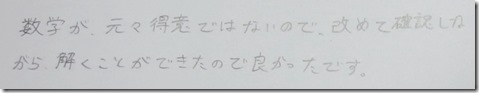 数学が、元々得意ではないので、改めて確認しな
がら、解くことができたので良かったです。